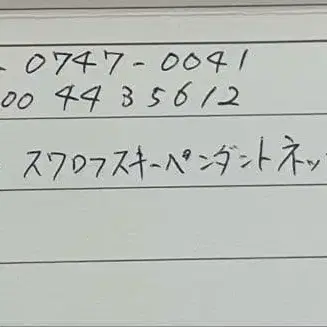 - 0747-0041
00 44 35612
スワロフスキーペンダントネッ